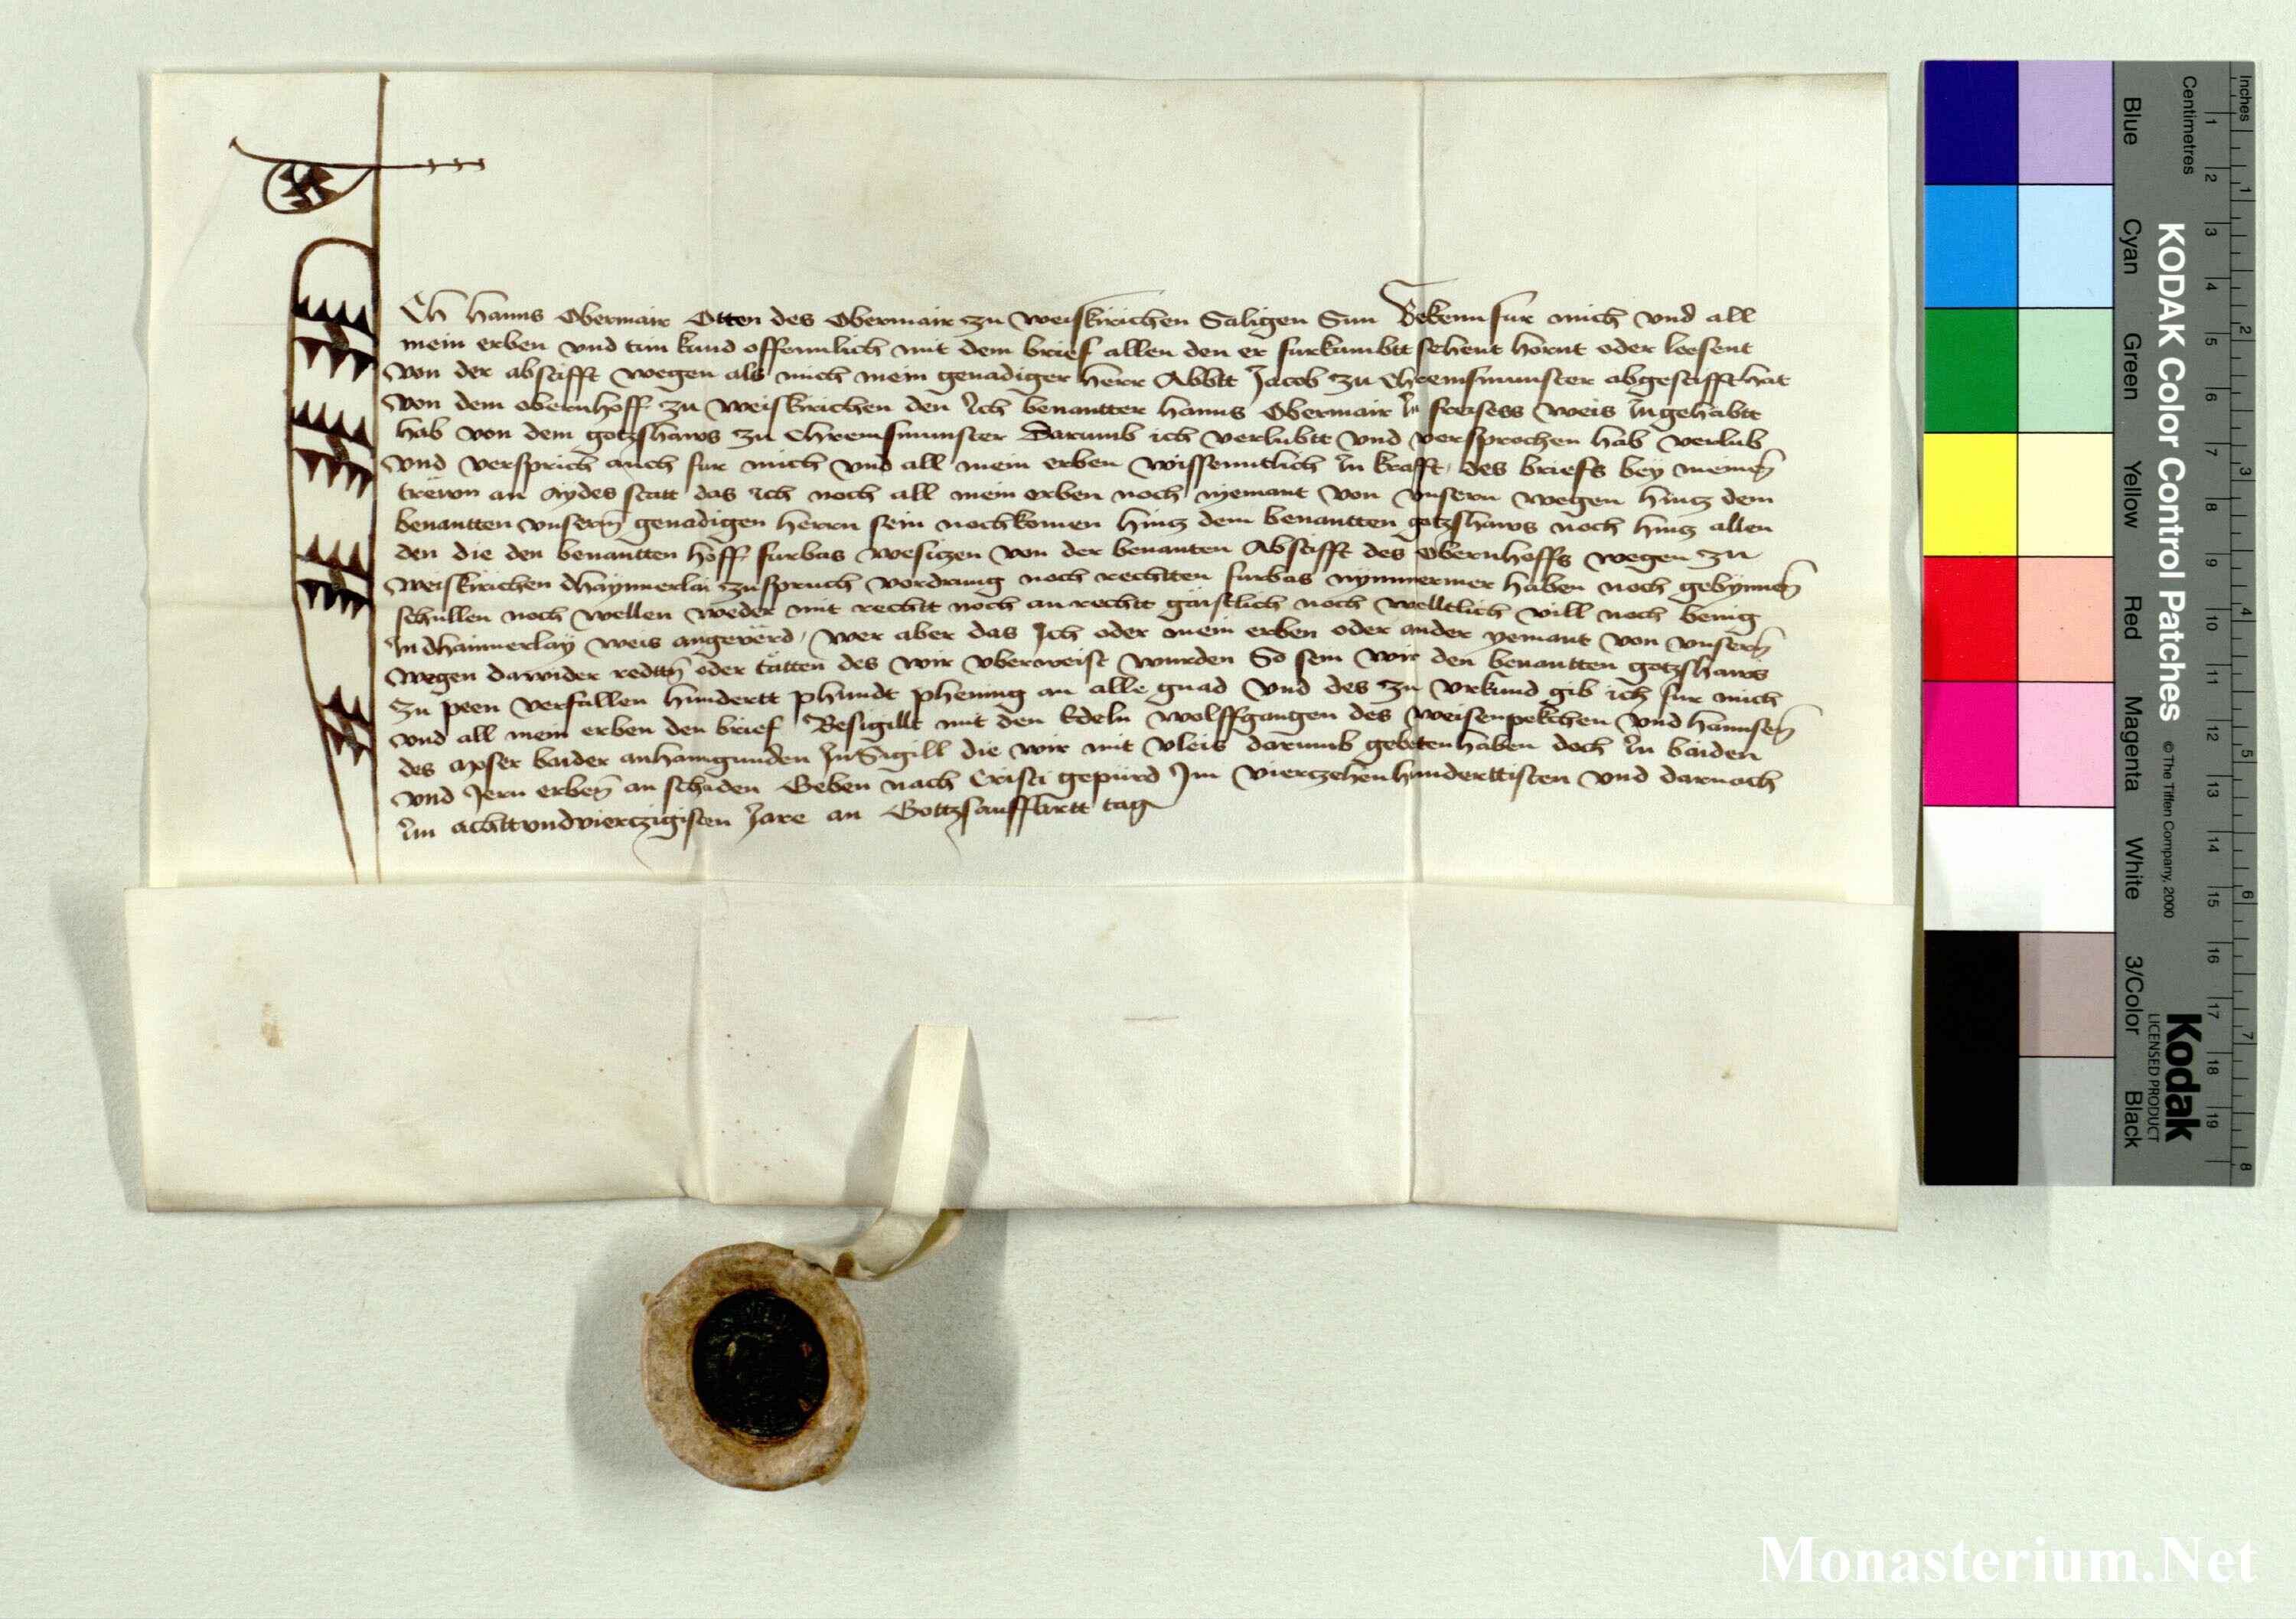 Ich Hanns Obermair Otten des Obermair zu weiskirichen Saligen Sun Bekenn fur mich vnd all
mein erben vnd tun kund offennlich mit dem brief allen den er furkumbtt sehent hornt oder leesent
von der abstifft wegen als mich mein genadiger herr Abbtt Jacob zu Chremsmunster abgestifft hat
von dem obernhoff zu weiskirichen den Ich benantter hanns Obermair In freisess weis Ingehabtt
hab von dem gotzhaws zu Chremsmunster Darumb ich verlubtt vnd versprochen hab verlub
vnd versprich auch fur mich vnd all mein erben wissenntlich In krafft des briefs bey meinen
trewn an Aydes statt das ich noch all mein erben noch nyemant von vnsern wegen hintz dem
benantten vnserm genadigen herrn sein nachkomen hintz dem benantten gotzshaws noch hintz allen
den die den benantten hoff furbas wesitzen von der benanten Abstifft des Obernhoffs wegen zu
weiskirichen dhaynnerlai zuspruch vordrung noch rechtten furbas nymmermer haben noch gebynnen
schullen noch wellen weder mit rechtt noch an rechtt gaistlich noch welltlich vill noch benig
In dhainnerlay weis angeverd wer aber das Ich oder mein erben oder ander yemant von vnsern
wegen dawider redtten oder tätten des wir vberweist wurden So sein wir den benantten gotzshaws
zu peen verfallen hundertt phundt phening an alle gnad vnd des zu vrkund gib ich fur mich
vnd all mein erben den brief Besigillt mit den Edeln wolffgangen des weisenpekchen vnd hannsen
des Moser baider anhanngunden InSigill die wir mit vleis darumb gebeten haben doch In baiden
vnd Jern erben an schaden Geben nach Cristi gepurd Im vierczehenhunderttisten vnd darnach
Im achttvndvierczigisten Jare an Gottzauffartt tag
Inches
Centimetres
Blue
Cyan
Green
Yellow
Red
Magenta
White
3/Color
Black
KODAK Color Control Patches
© The Tiffen Company, 2000
Kodak
LICENSED PRODUCT
1 2 3 4 5 6 7 8 9 10 11 12 13 14 15 16 17 18 19
1 2 3 4 5 6 7 8
Monasterium.Net